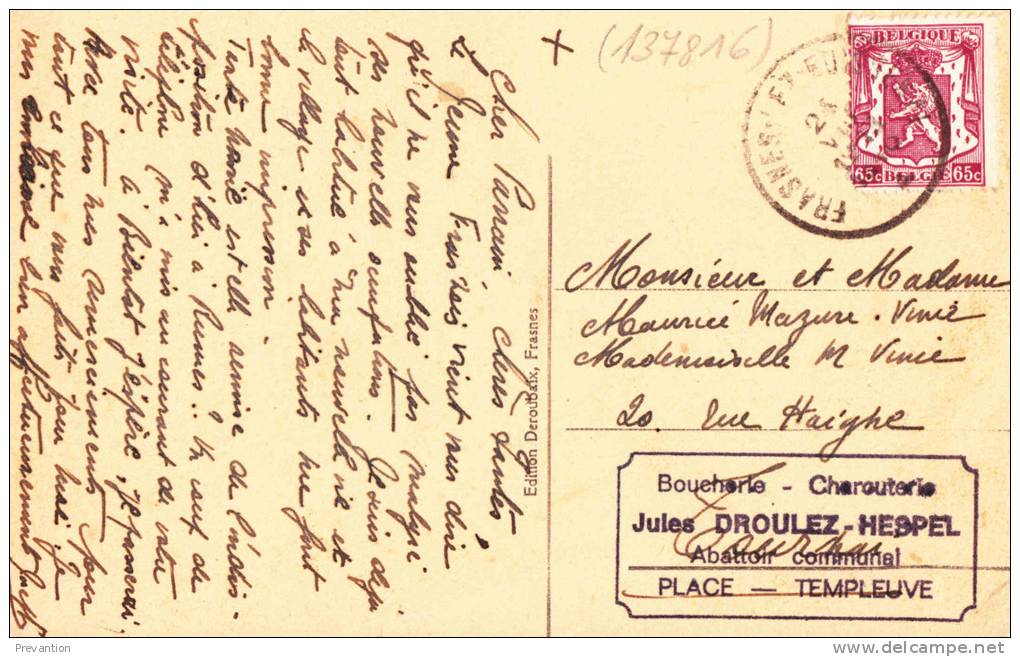 (137816)
BELGIQUE
65c BELGIË 65c
FRASNES-LEZ-BUISSENAL
Cher Parrain, chers tantes,
Le Jeune Frasnois vient vous dire
qu'il ne vous oublie pas malgré
ses nouvelles occupations. Je suis déjà
tout habitué à ma nouvelle vie et
le village et ses habitants me font
bonne impression.
Tante Marie est-elle remise de l'indis-
position d'hier à Rumes.. Un coup de
téléphone m'a mis au courant de votre
visite. à Bientôt j'espère, je passerai.
Avec tous mes remerciements pour
tout ce que vous faites pour moi je
vous embrasse bien affectueusement
Edition Deroubaix, Frasnes
Monsieur et Madame
Maurice Mazure-Vinié
Mademoiselle M Vinié
20 rue Haighe
Tournai
Boucherie - Charcuterie
Jules DROULEZ-HESPEL
Abattoir communal
PLACE — TEMPLEUVE
Prevantion
delcampe.net